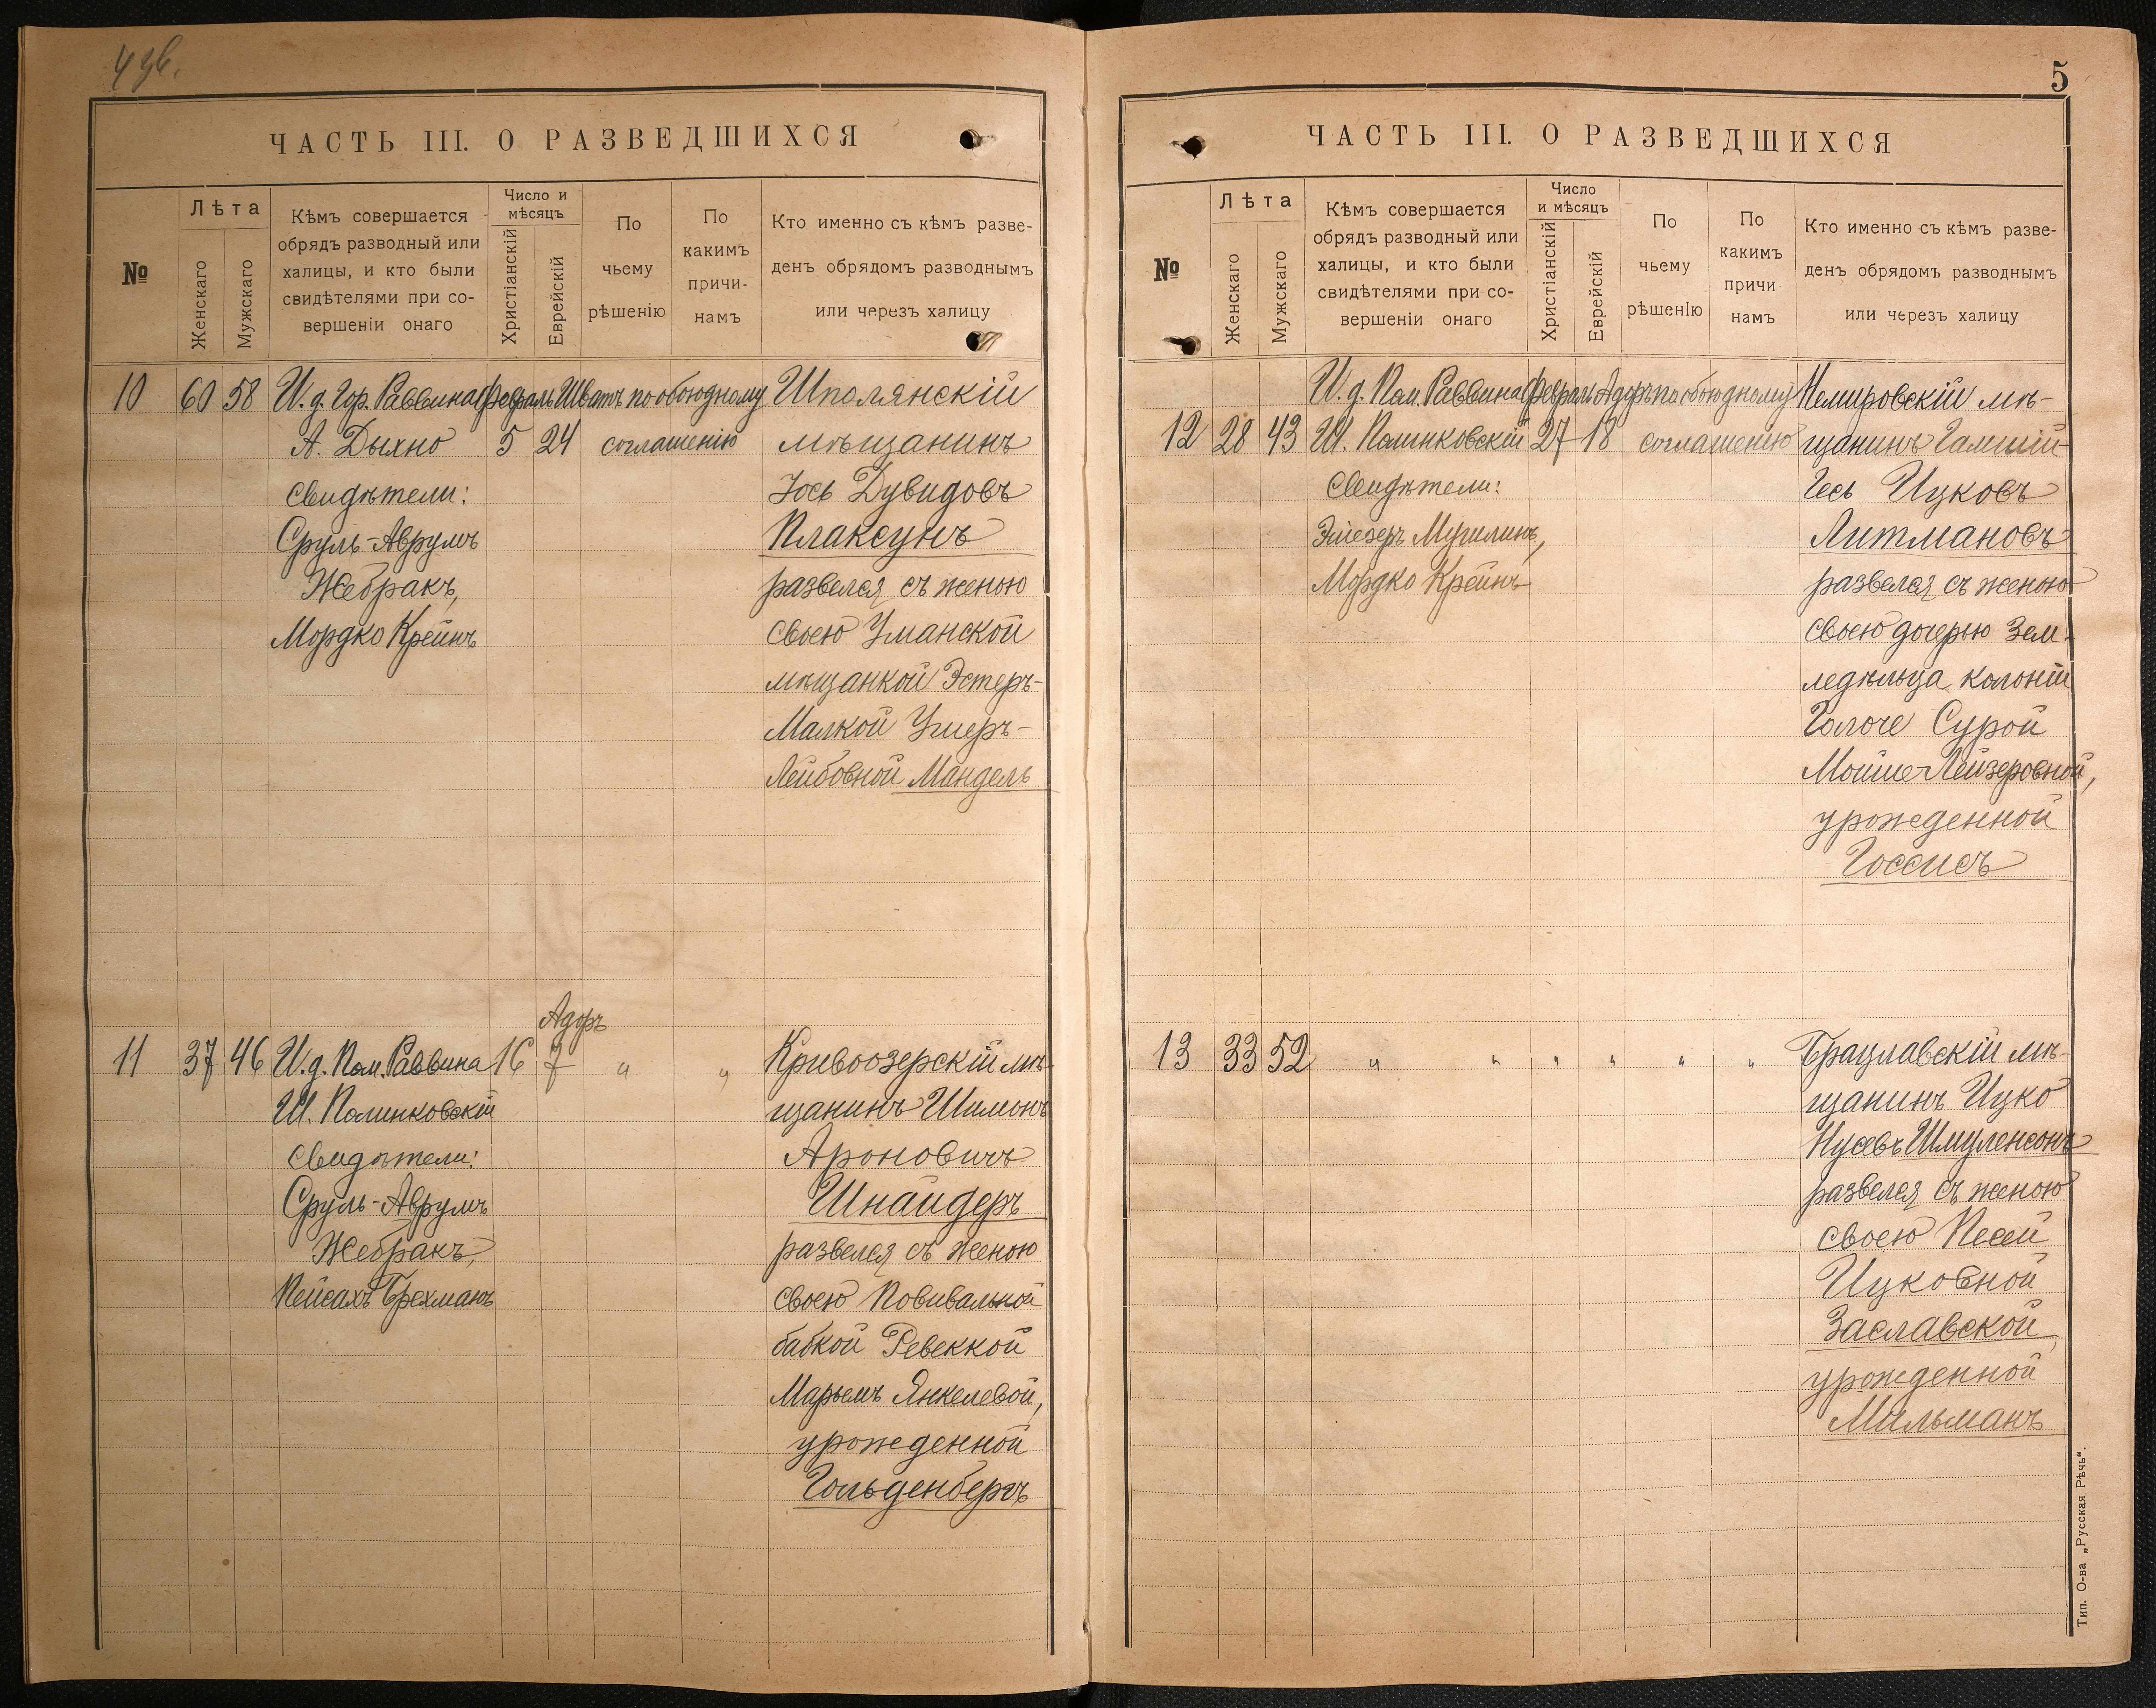 4 зв.
ЧАСТЬ III. О РАЗВЕДШИХСЯ
№
Лѣта
Женскаго
Мужскаго
Кѣмъ совершается
обрядъ разводный или
халицы, и кто были
свидѣтелями при со-
вершеніи онаго
Число и
мѣсяцъ
Христіанскій
Еврейскій
По
чьему
рѣшенію
По
какимъ
причи-
намъ
Кто именно съ кѣмъ разве-
денъ обрядомъ разводнымъ
или черезъ халицу
10 60 58 И. д. Гор. Раввина Февраль Шватъ по обоюдному Шполянскій
А. Дыхно 5 24 соглашенію мѣщанинъ
Свидѣтели: Іось Дувидовъ
Сруль-Аврумъ Плаксунъ
Жебракъ, развелся съ женою
Мордко Крейнъ своею Уманской
мѣщанкой Эстеръ-
Малкой Ушеръ-
Лейбовной Мандель
Адоръ
11 37 46 И. д. Пом. Раввина 16 7 " " Кривоозерскій мѣ-
Ш. Полинковскій щанинъ Шимонъ
Свидѣтели: Ароновичъ
Сруль-Аврумъ Шнайдеръ
Жебракъ, развелся съ женою
Пейсахъ Брехманъ своею повивальной
бабкой Ревеккой
Марьемъ Янкелевой,
урожденной
Гольденбергъ
5
ЧАСТЬ III. О РАЗВЕДШИХСЯ
№
Лѣта
Женскаго
Мужскаго
Кѣмъ совершается
обрядъ разводный или
халицы, и кто были
свидѣтелями при со-
вершеніи онаго
Число
и мѣсяцъ
Христіанскій
Еврейскій
По
чьему
рѣшенію
По
какимъ
причи
намъ
Кто именно съ кѣмъ разве-
денъ обрядомъ разводнымъ
или черезъ халицу
И. д. Пом. Раввина Февраль Адоръ по обоюдному Немировскій мѣ-
12 28 43 Ш. Полинковскій 27 18 соглашенію щанинъ
Свидѣтели: Ицковъ
Мордко Крейнъ Литмановъ
развелся съ женою
своею дочерью зем-
ледѣльца колоніи
Сурой
Мойше-Лейзеровной,
урожденной
Госсисъ
13 33 52 " " " " " " Брацлавскій мѣ-
щанинъ Ицко
Нусевъ Шмуленсонъ
развелся съ женою
своею Песей
Ицковной
Заславской,
урожденной
Мильманъ
Тип. О-ва „Русская Рѣчь“.